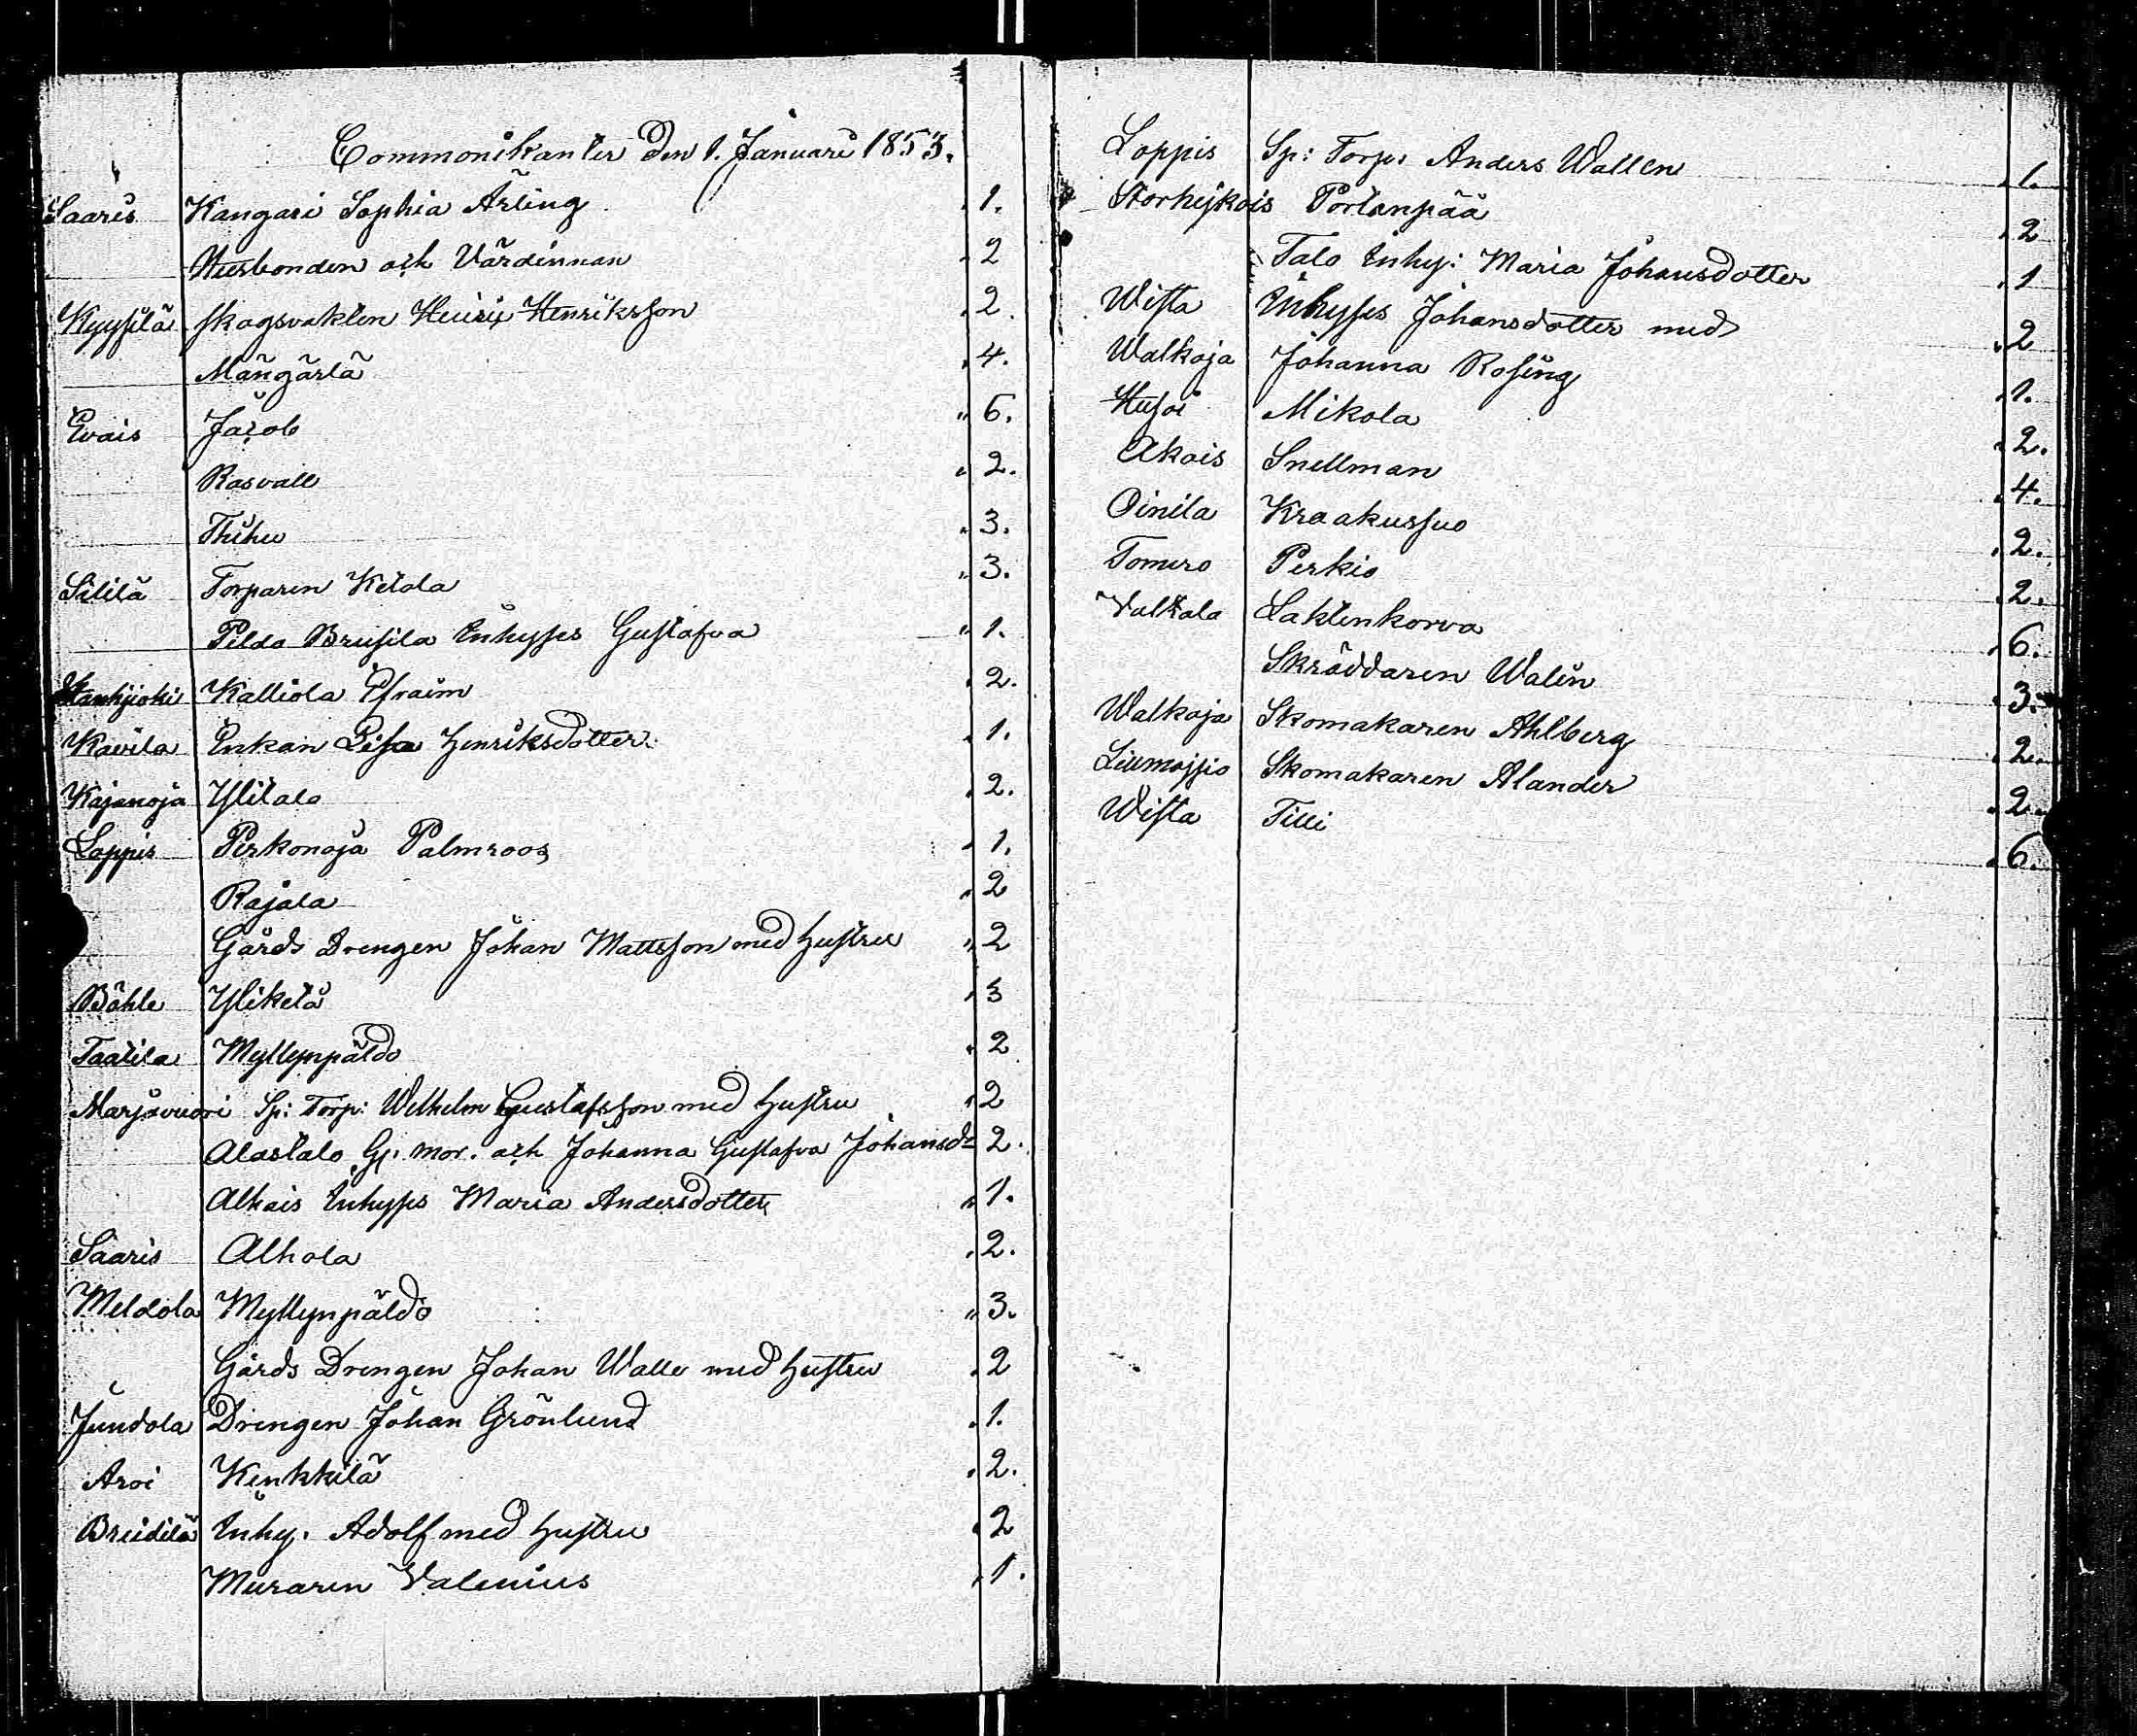 Commonikanter den 1. Januari 1853.
Saaris Kangari Sophia Årling 1.
Husbonden och Värdinnan 2
Kyysilä skogsvakten Henrik Henriksson 2.
Mängärlä 4.
Evais Jacob 6.
Rasvall 2.
Thihu 3.
Sililä Torparen Ketola 3.
Pildo Brusila Inhyses Gustafva 1.
Kalliola Efraim 2.
Kavila Enkan Lisa Henriksdotter 1.
Kajanoja Ylitalo 2.
Loppis Perkonoja Palmroos 1.
Rajala 2
Gårds Drengen Johan Mattsson med hustru 2
Böhle Ylikelä 3
Taatila Myllynpäldo 2
Marjavuori Sp: Torp: Wilhelm Gustafsson med hustru 2
Alastalo G. mor. och Johanna Gustafva Johansdr 2.
Alhais Inhyses Maria Andersdotter 1.
Saaris Alhola 2.
Meldola Myllynpäldo 3.
Gårds Drengen Johan Walle med hustru 2
Jundola Drengen Johan Grönlund 1.
Aroi Kenkkilä 2.
Breidilä Inhy. Adolf med hustru 2
Muraren Valenius 1.
Loppis Sp: Torp. Anders Wallen 1.
Storhejkois Portanpää 2
Talo Inhy: Maria Johansdotter 1
Wista Inhyses Johansdotter med 2
Walkoja Johanna Rosing 1.
Husoi Mikola 2.
Akois Snellman 4.
Oinila Kraakursuo 2.
Tomero Perkio 2.
Valkola Laktenkorva 6.
Skräddaren Walin 3.
Walkoja Skomakaren Ahlberg 2.
Skomakaren Alander 2.
Wista Tilli 6.